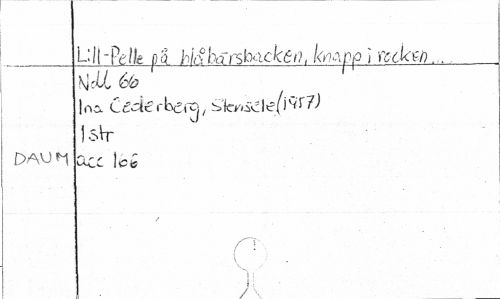 Lill-Pelle på blåbärsbacken, knapp i rocken...
Ndl 66
Ina Cederberg, Stensele (1957)
1 str
DAUM acc 166